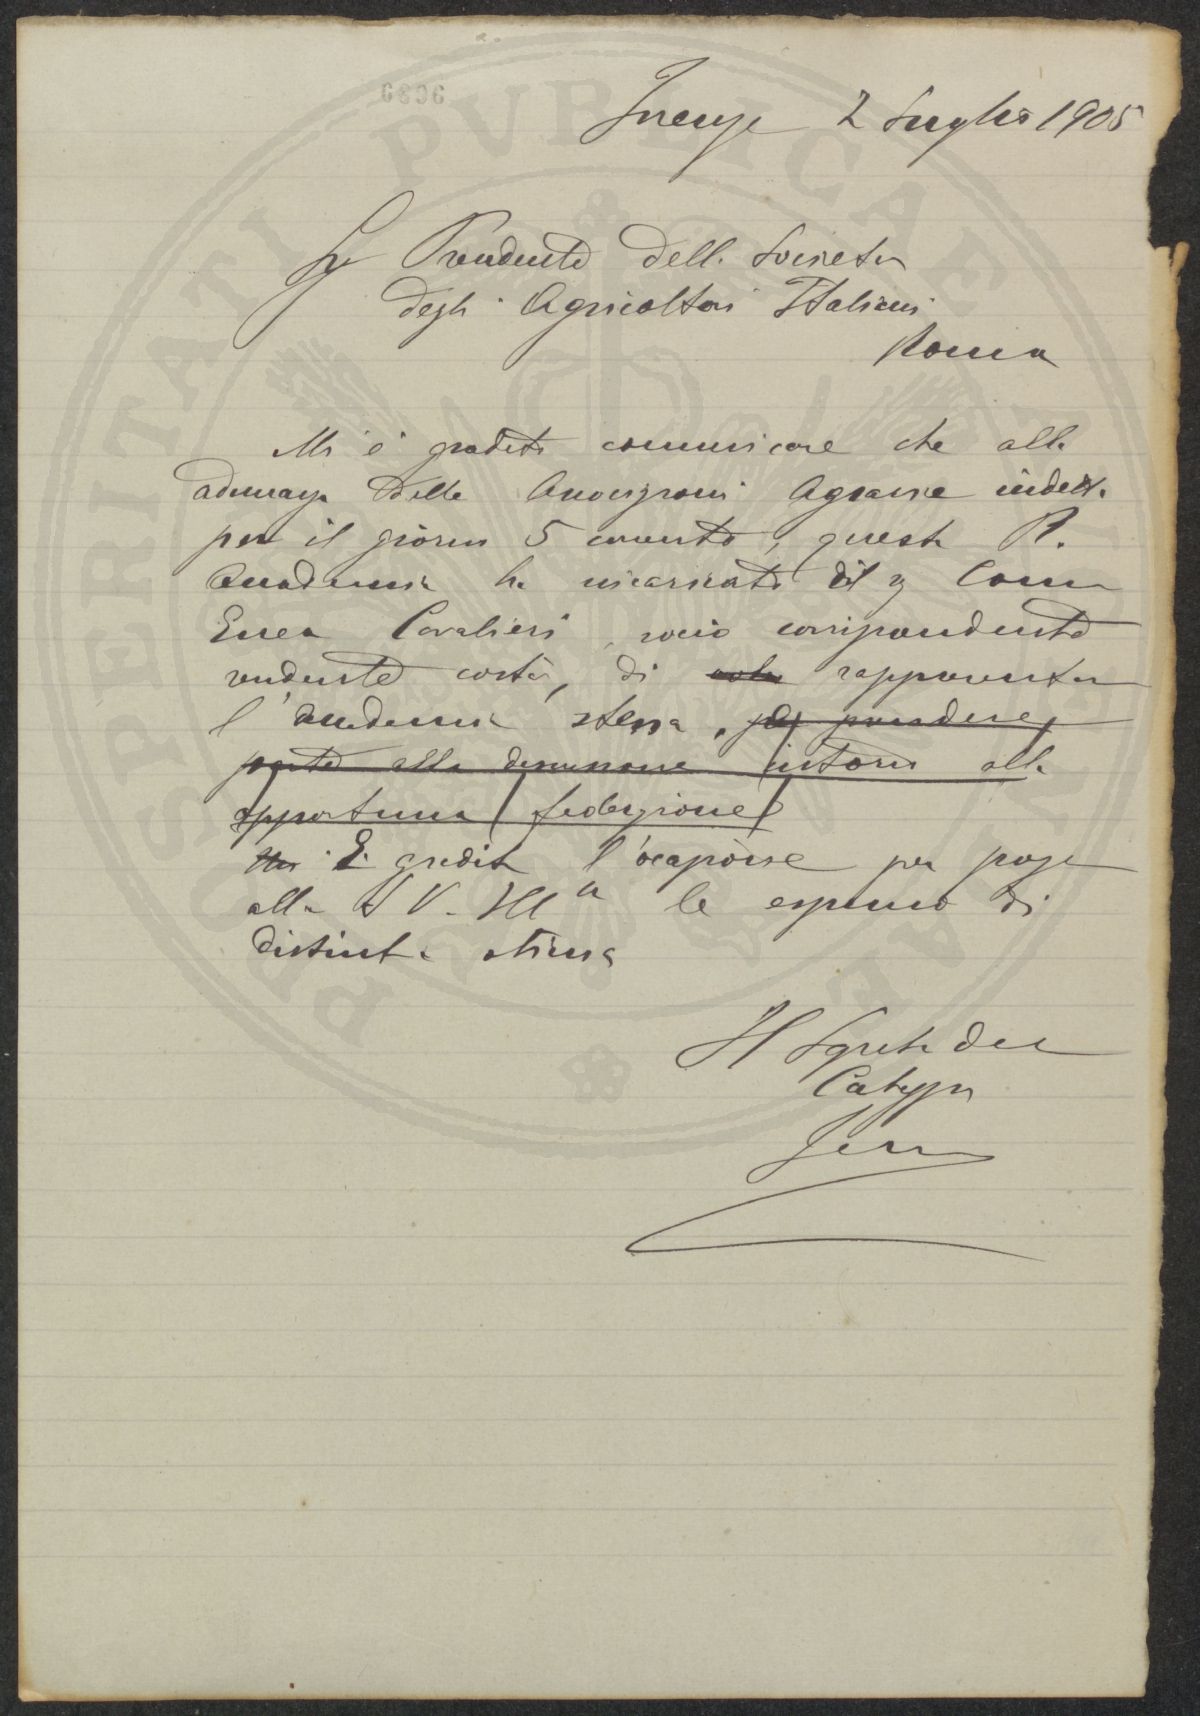 Firenze 2 Luglio 1905
Sig Presidente della Società
degli Agricoltori Italiani
Roma
Mi è gradito comunicare che alla
adunanza delle Associazioni Agrarie indetta
per il giorno 5 corrente, questa R.
Accademia ha incaricato il Sig Comm
Enea Cavalieri, socio corrispondente
residente costà, di rappresentare
l'Accademia stessa, per prendere
parte alla discussione intorno alla
opportuna federazione
È gradita l'occasione per porge
alla S V. Ill a le espressio di
distinta stima
Il Segreto
PROSPERITATI PVBLICAE AVGENDAE